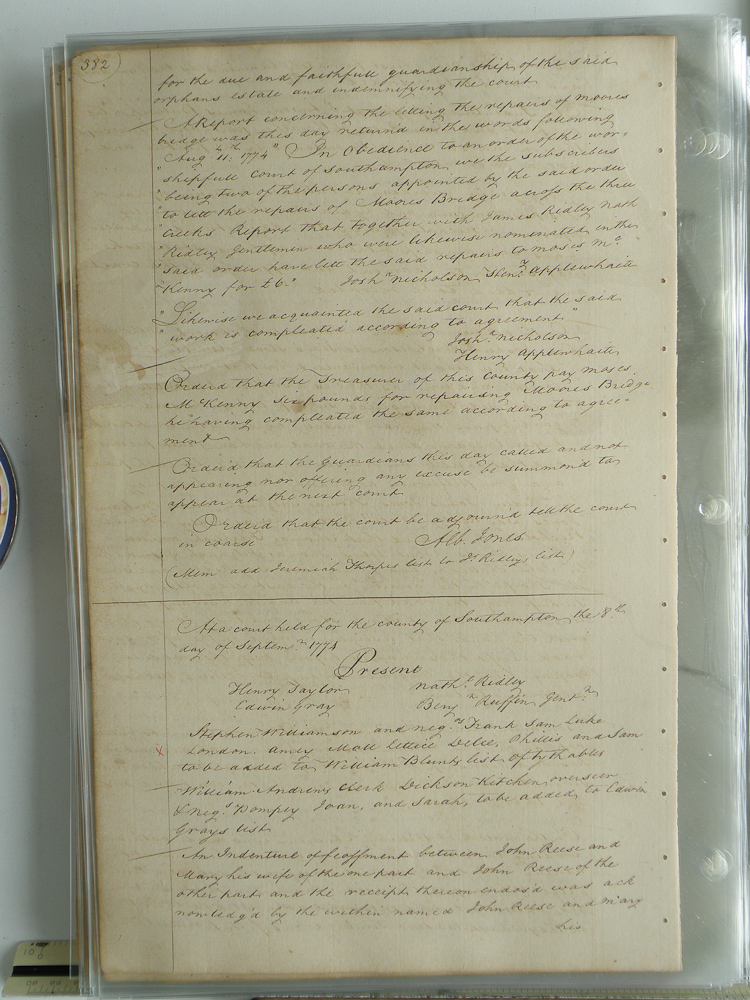 382
for the due and faithfull guardianship of the said
orphans estate and indemnifying the court
A Report concerning the letting the repairs of moores
bridge was this day returnd in the words following
Augt 11th: 1774 " In Obedience to an order of the wor=
" shipfull Court of Southampton, we the subscribers
" being two of the persons appointed by the said order
" to lett the repairs of Moores Bridge across the three
" creeks Report that together with James Ridley Nath
" Ridley Gentlemen who were likewise nominated in the
" said order have lett the said repairs to moses mc
" Kenny for £6." Josha Nicholson Henry Applewhaite
" Likewise we acquainted the said court that the said
" work is compleated according to agreement "
Josha Nicholson
Henry Applewhaite
Orderd that the Treasurer of this County pay moses
McKenny six pounds for repairing Moores Bridge
he having compleated the same according to agree=
ment
Orderd that the Guardians this day called and not
appearing nor offering any excuse be summond to
appear at the next court
Orderd that the court be adjournd till the court
in coarse Alb. Jones
(Mem add Jeremiah Thorpes list to Js. Ridleys list)
At a court held for the county of Southampton the 8th
day of Septemr 1774
Present
Henry Taylor Nathl Ridley
Edwin Gray Benjn Ruffin Gentn
Stephen Williamson and negos Frank Sam Luke
London, Amey Moll Lettice Delce, Phillis and Sam
to be added to William Blunts list of tythables
William Andrews Clerk Dickson Kitchen overseer
& negs Pompey Joan, and Sarah, to be added to Edwin
Grays list
An Indenture of feoffment between John Reese and
Mary his wife of the one part and John Reese of the
other part and the receipt thereon endos'd was ack
nowledg'd by the within named John Reese and Mary
his